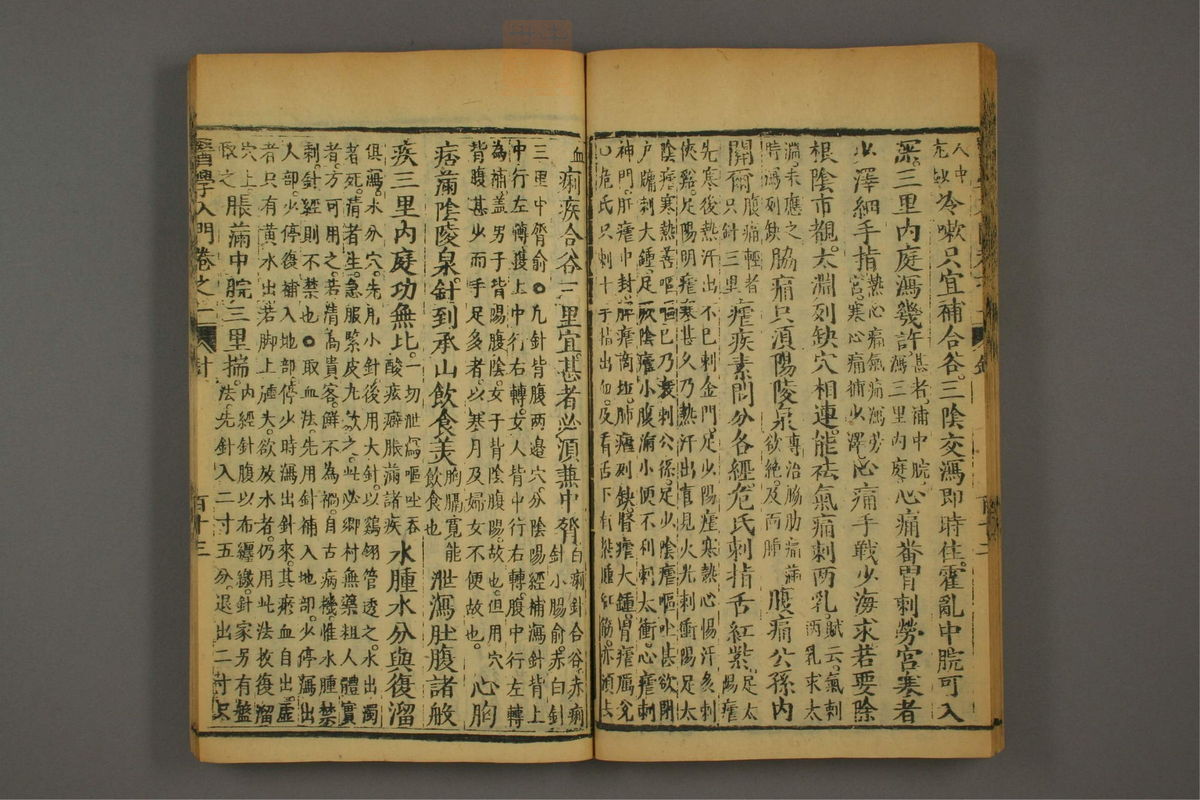 人中
尤妙
冷嗽只宜補合谷。三陰交瀉即時住。霍亂中脘可入
深。三里內庭瀉幾許
甚者。補中脘。
瀉三里內庭。
心痛番胃刺勞宮寒者
少澤細手指
熱心痛氣痛瀉勞
宮。寒心痛補少澤。
心痛手戰少海求若要除
根陰市覩。太淵列缺穴相連。能祛氣痛刺兩乳。
賦云。氣刺
兩乳求太
淵。未應之
時瀉列缺
脇痛只須陽陵泉
專治脇肋痛滿
欲絕。及面腫
腹痛公孫內
關爾
腹痛輕者
只針三里
瘧疾素問分各經。危氏刺指舌紅紫。
足太
陽瘧
先寒後熱汗出不已刺金門。足少陽瘧寒熱心惕汗多刺
俠谿。足陽明瘧寒甚久乃熱汗出喜見火光刺衝陽足太
陰瘧。寒熱善嘔嘔已乃衰刺公孫。足少陰瘧嘔吐甚欲閉
戶牖刺大鍾。足厥陰瘧小腹滿小便不利刺太衝。心瘧刺
神門。肝瘧中封。脾瘧商坵。肺瘧列缺。腎瘧大鍾。胃瘧厲兌
○危氏只刺十手指出血。及看舌下有紫腫紅筋。亦須去
血
痢疾合谷三里宜。甚者必須兼中膂
白痢針合谷。赤痢
針小腸俞。赤白針
三里中膂俞○凡針背腹兩邊穴。分陰陽經補瀉針背上
中行左轉獲上中行右轉。女人背中行右轉。腹中行左轉
為補。盖男子背陽腹陰。女子背陰腹陽。故也。但用穴
背腹甚少而手足多者。以寒月及婦女不便故也。
心胸
痞滿陰陵泉。針到承山飲食美
胸膈寬能
飲食也
泄瀉肚腹諸般
疾三里內庭功無比。
一切泄瀉嘔吐吞
酸痃癖脹滿諸疾
水腫水分與復溜
俱瀉。水分穴。先用小針。後用大針。以鷄翎管透之。水出濁
者死。清者生。急服緊皮丸歛之。此必鄉村無藥粗人體實
者。方可用之。若清高貴客。鮮不為禍。自古病機。惟水腫禁
刺。針經則不禁也。○取血法。先用針補入地部。少停瀉出
人部。少停復補入地部。停少時瀉出針來。其瘀血自出。虛
者只有黃水出。若脚上腫大。欲放水者。仍用此法復溜
穴上
取之
脹滿中脘三里揣。
內經針腹以布纏繳。針家另有盤
法。先針入二寸五分。退出二寸。只
醫學入門卷之二 針 百十三